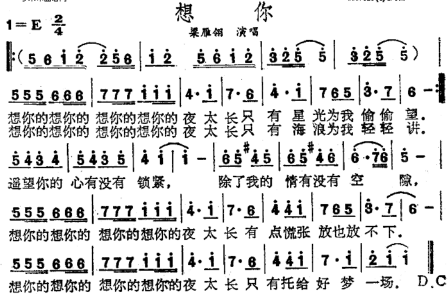 想 你
1=E 2/4
梁雁翎 演唱
(5 6 1 2 2 5 6 | 1 2 5 6 1 2 | 3 2 5 5 | 3 2 5 5)
5 5 5 6 6 6 | 7 7 7 1 1 1 | 4· 1 | 7· 6 | 4· 1 | 7 6 5 | 7 6 5 | 3· 7 | 6 -
想你的想你的 想你的想你的夜 太 长只 有 星 光为我 偷偷 望。
想你的想你的 想你的想你的夜 太 长只 有 海 浪为我 轻轻 讲。
5 4 3 4 | 5 4 3 5 | 4 1 | 1 - | 6 5 #4 5 | 6 5 #4 6 | 6· 7 6 | 5 -
遥望你的 心有没有 锁紧, 除了我的 情有没有 空 隙,
5 5 5 6 6 6 | 7 7 7 1 1 1 | 4· 1 | 7· 6 | 4 4 1 | 7 6 5 | 3· 7 | 6 -
想你的想你的 想你的想你的夜 太 长 有 点慌张 放也放 不 下。
5 5 5 6 6 6 | 7 7 7 1 1 1 | 4· 1 | 7· 6 | 4 4 1 | 7· 3 | 2 1 1 | 1 -
想你的想你的 想你的想你的夜 太 长 只 有托给 好 梦 一场。 D.C